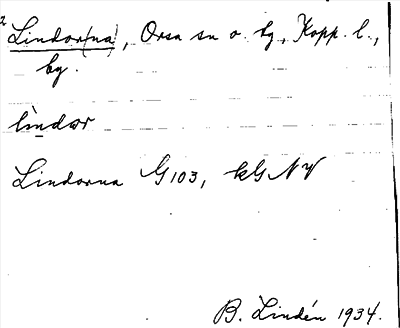 2 Lindor(na), Orsa sn o. tg., Kopp. l.,
by.
lìndær
Lindorna G103, kG NV
B. Lindén 1934.